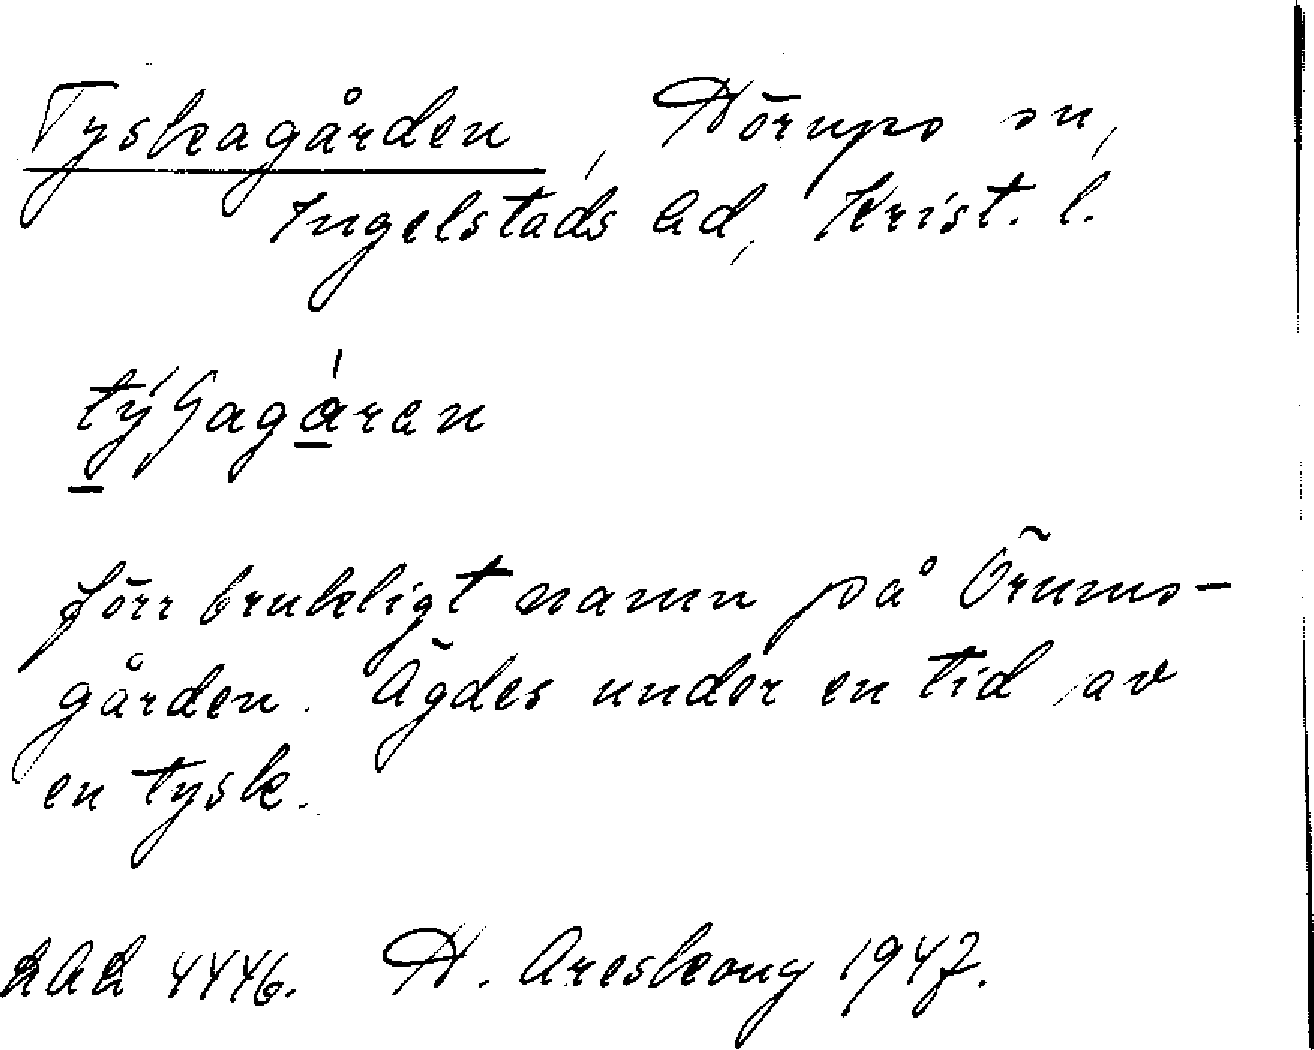 Tyskagården, Hörups sn,
Ingelstads hd, Krist. l.
förr brukligt namn på Örums-
gården. Ägdes under en tid av
en tysk.
4446. H. Areskoug 1947.